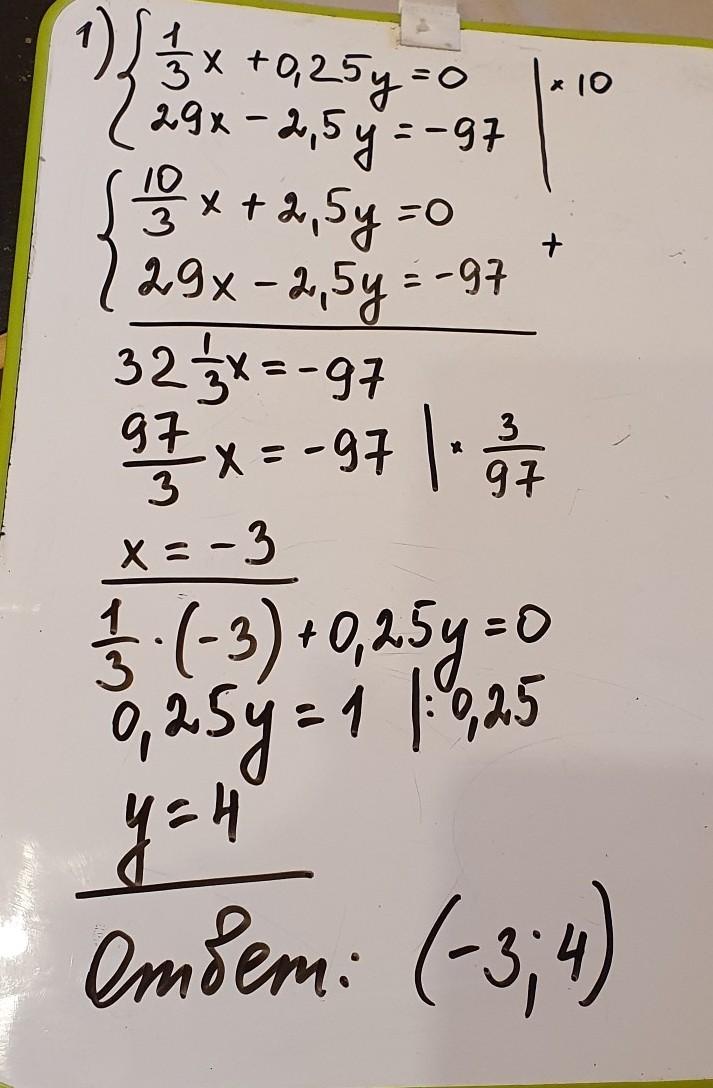 1) { 1/3 x + 0,25y = 0 | × 10
29x - 2,5y = -97
{ 10/3 x + 2,5y = 0
+
29x - 2,5y = -97
32 1/3 x = -97
97/3 x = -97 | × 3/97
x = -3
1/3 · (-3) + 0,25y = 0
0,25y = 1 | : 0,25
y = 4
Ответ: (-3; 4)